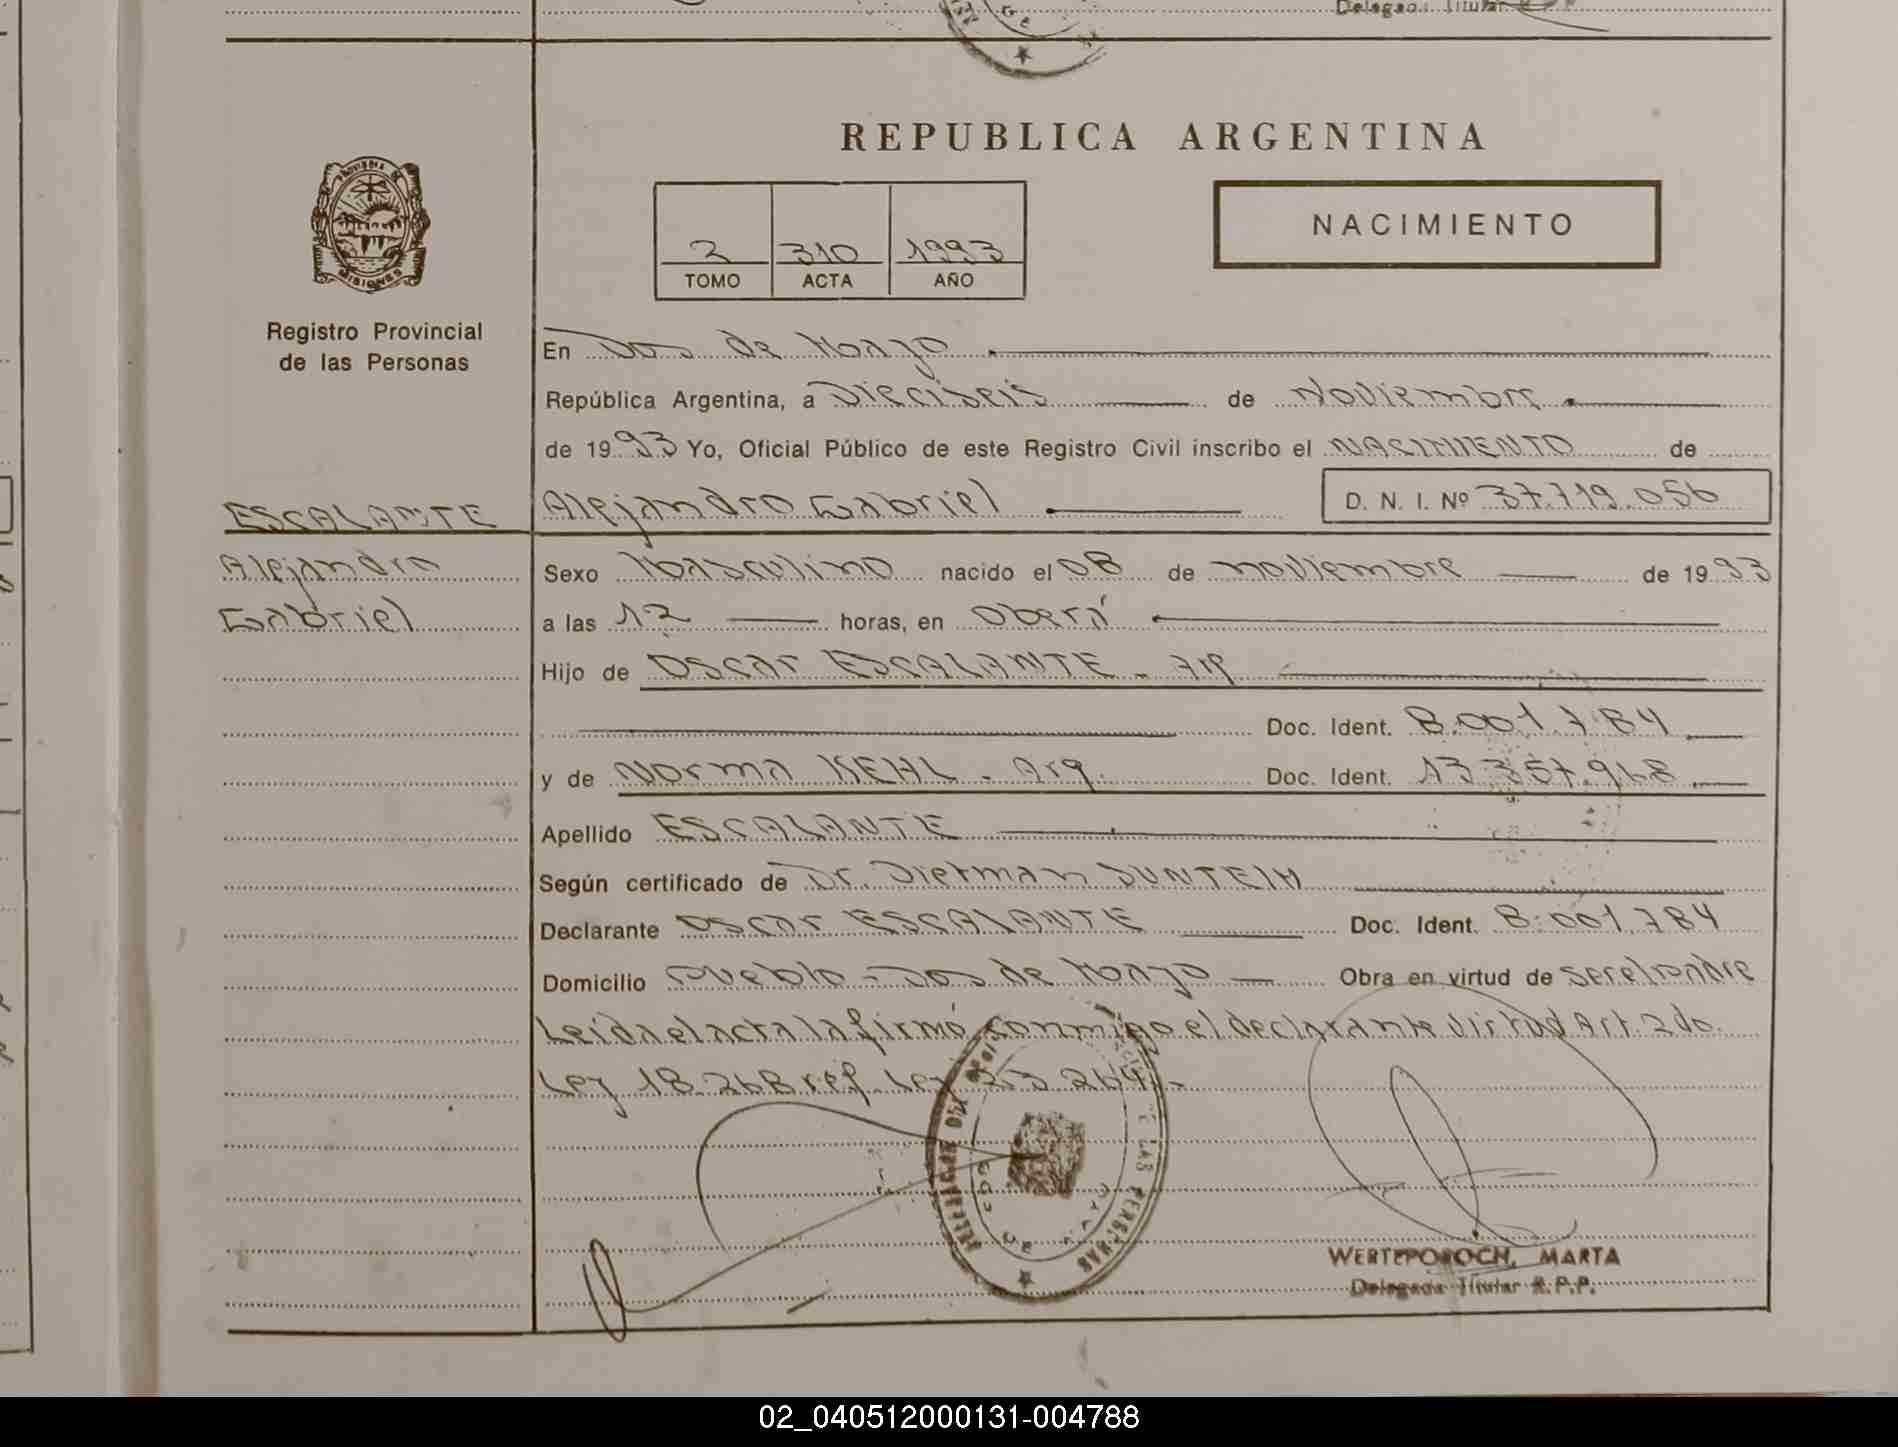 Delegada Titular
REPUBLICA ARGENTINA
NACIMIENTO
2 310 1993
TOMO ACTA AÑO
PROVINCIA DE
MISIONES
Registro Provincial
de las Personas
En Dos de Mayo
República Argentina, a Dieciseis de Noviembre
de 1993 Yo, Oficial Público de este Registro Civil inscribo el NACIMIENTO de
ESCALANTE
Alejandro Gabriel D. N. I. Nº 37.719.056
Alejandro
Gabriel
Sexo Masculino nacido el 08 de noviembre de 1993
a las 12 horas, en Oberá
Hijo de Oscar ESCALANTE - Arg
Doc. Ident. 8.001.784
y de Norma KEHL - Arg. Doc. Ident. 13.357.968
Apellido ESCALANTE
Según certificado de Dr. Dietman
Declarante Oscar ESCALANTE Doc. Ident. 8.001.784
Domicilio Pueblo - Dos de Mayo Obra en virtud de ser el padre
Leída el acta la firmó conmigo el declarante virtud Art. 2do.
Ley 18.268 ref. Ley 23.264.-
DE LAS PERSONAS
DOS DE MAYO
WERTEPOROCH, MARTA
Delegada Titular R.P.P.
02_040512000131-004788